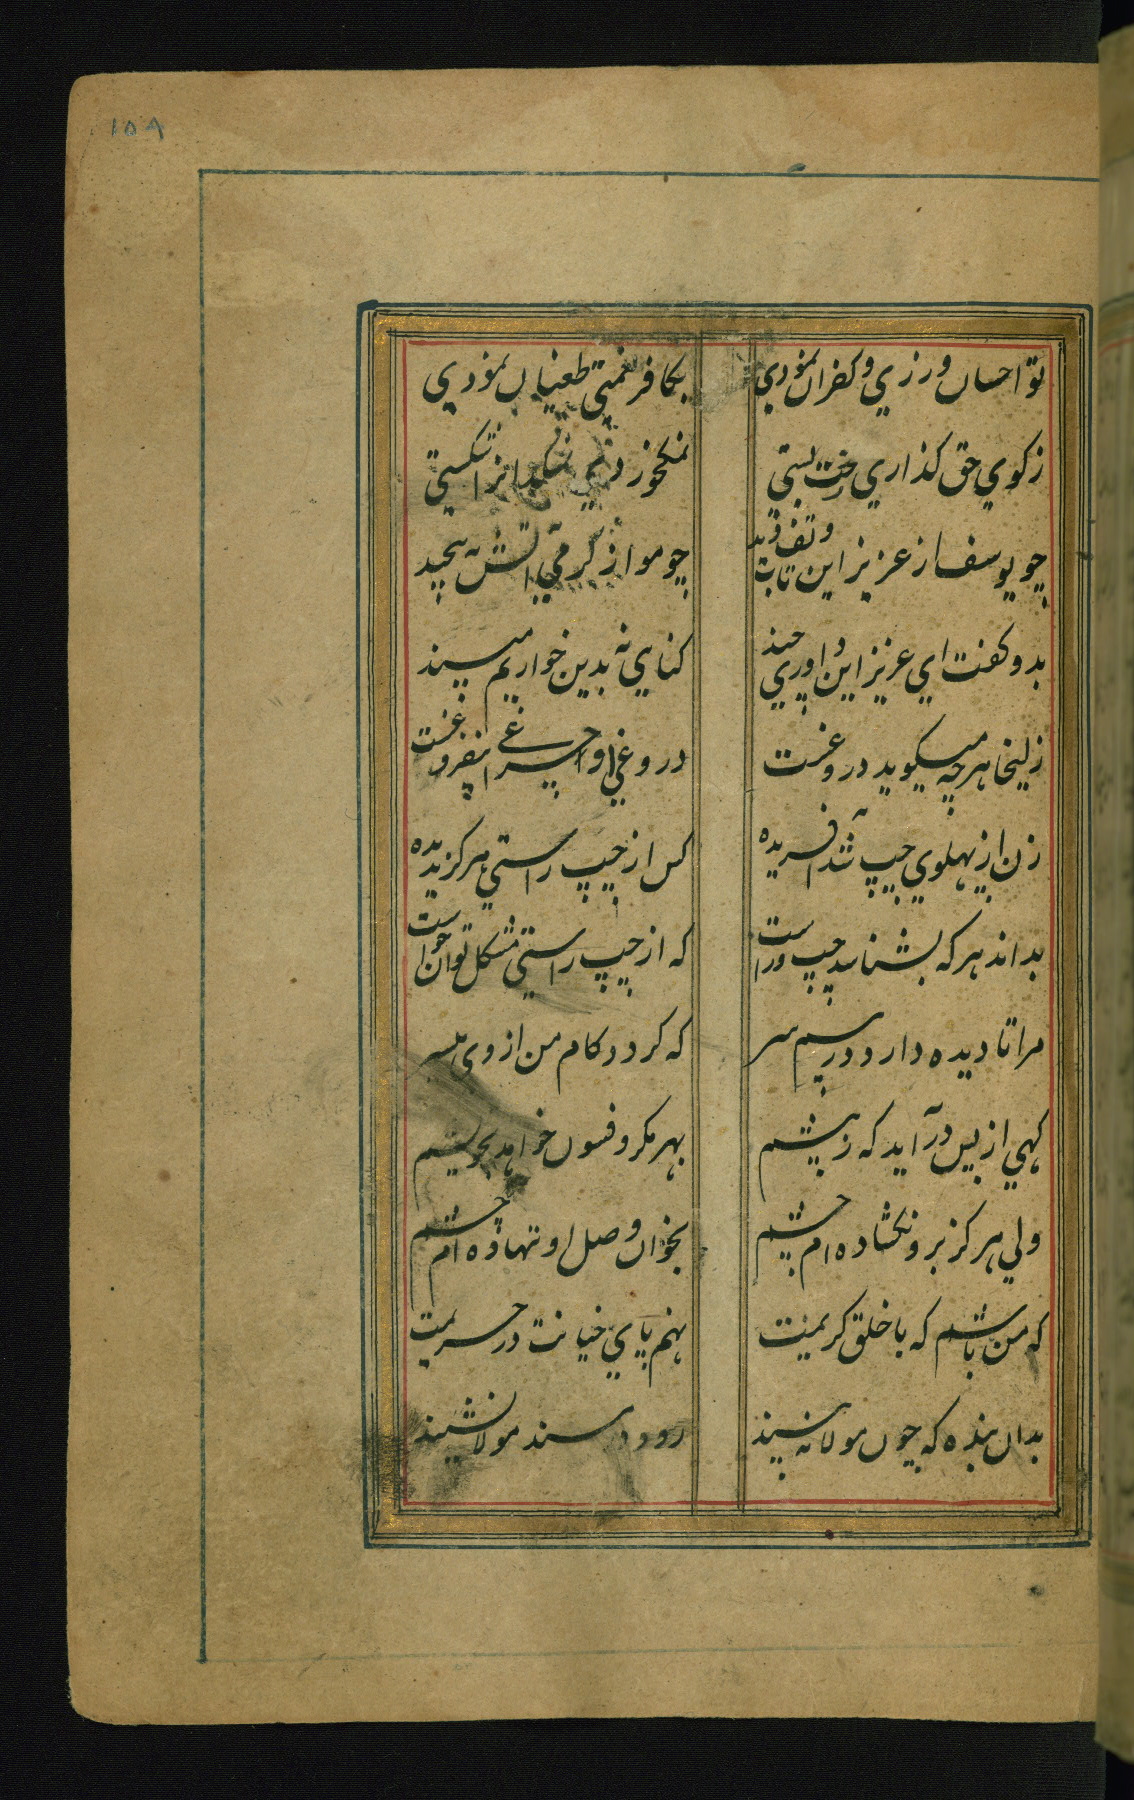 ۱۵۸
تو احسان ورزی و کفران نمودی بکافر نعمتی طغیان نمودی
زکوی حق کذاری رخت بستی نمک خوردی نمکدانرا شکستی
چو یوسف از عزیز این تاب و تف دید چو مو از کرمی آتش به پیچید
بدو کفت ای عزیز این داوری چند کناهی نه بدین خواریم مپسند
زلیخا هر چه میکوید دروغست دروغ او چراغ بیفروغست
زن از پهلوی چپ شد آفریده کس از چپ راستی هرکز ندیده
بداند هر که بشناسد چپ و راست که از چپ راستی مشکل توان خواست
مرا تا دیده دارد در پیم سر که کردد کام من از وی میسر
کهی از پس در آید که ز پیشم بهر مکر و فسون خواهد بخویشم
ولی هرکز برو نکشاده ام چشم بخوان وصل او ننهاده ام چشم
که من باشم که با خلق کریمت نهم پای خیانت در حریمت
بدان بنده که چون مولا نه بیند رود در مسند مولا نشیند